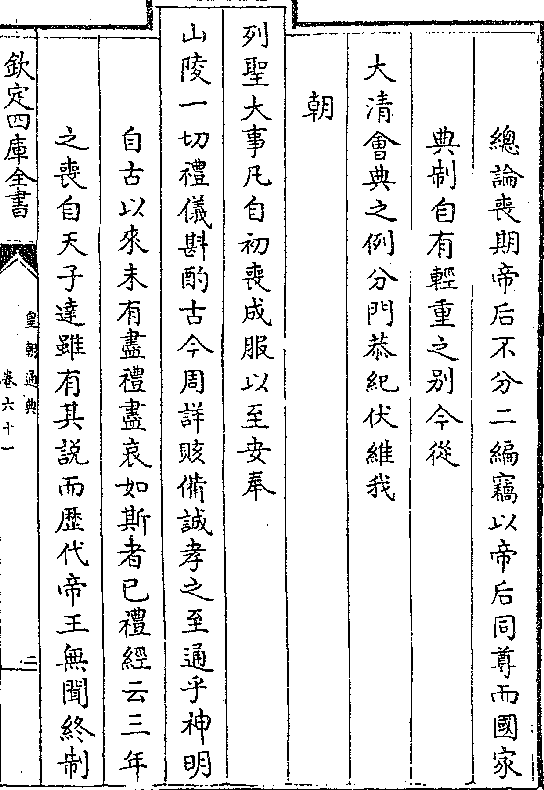 總論喪期帝后不分二編竊以帝后同尊而國家
典制自有輕重之别今從
大清會典之例分門恭紀伏維我
朝
列聖大事凡自初喪成服以至安奉
山陵一切禮儀斟酌古今周詳賅備誠孝之至通乎神明
自古以來未有盡禮盡哀如斯者已禮經云三年
之喪自天子達雖有其説而歴代帝王無聞終制
欽定四庫全書
皇朝通典
卷六十一
二